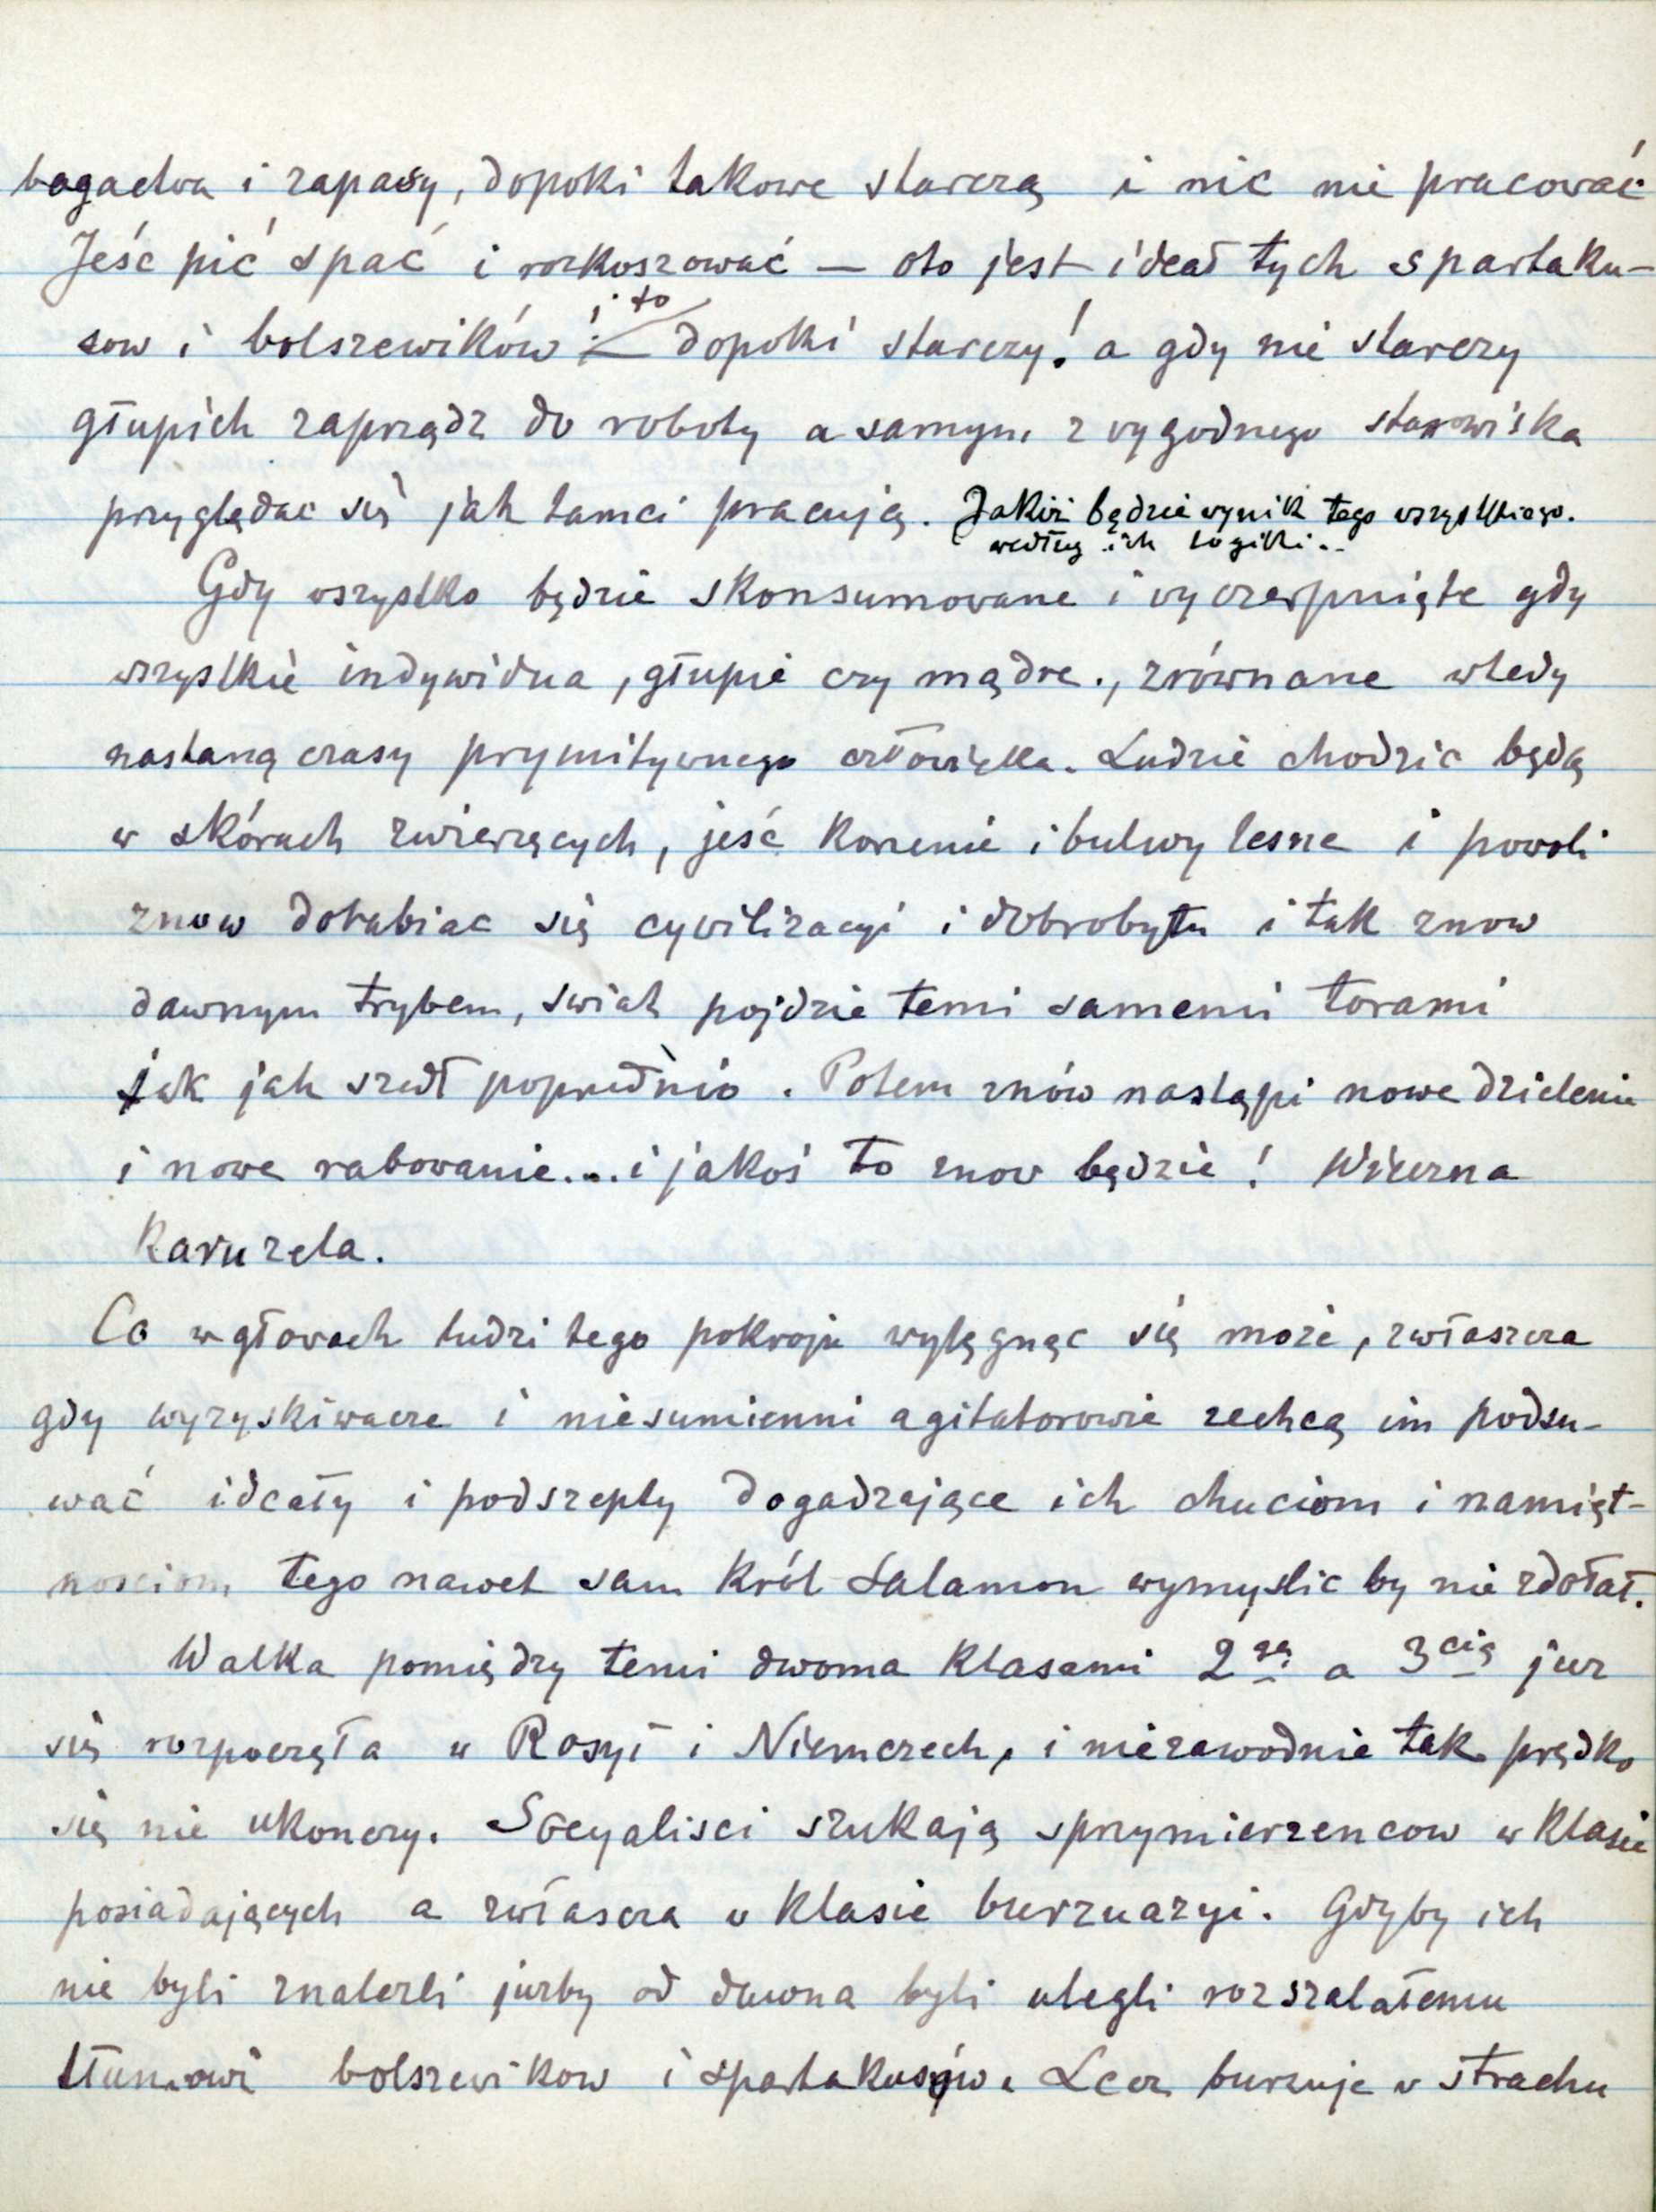 bogactwa i zapasy, dopoki takowe starczą i nic nie pracować
Jeść pić spać i rozkoszować — oto jest ideał tych spartaku-
sow i bolszewików! i to dopoki starczy! a gdy nie starczy
głupich zaprządz do roboty a samym z vygodnego stanowiska
przyglądac się jak tamci pracują. Jakiż będzie wynik tego wszystkiego.
według ich logiki..
Gdy wszystko będzie skonsumowane i vyczerpnięte gdy
wszystkie indywidua, głupie czy mądre., zrównane wtedy
nastaną czasy prymitywnego człowieka. Ludzie chodzic będą
w skórach zwierzęcych, jeść korzenie i bulwy lesne i powoli
znow dorabiac się cywilizacyi i dobrobytu i tak znow
dawnym trybem, swiat pojdzie temi samemi torami
jak szedł poprzednio. Potem znów nastąpi nowe dzielenie
i nowe rabowanie.... i jakoś to znov będzie! Wieczna
Karuzela.
Co w głovach ludzi tego pokroju wylęgnąc się może, zwłaszcza
gdy wyzyskiwacze i niesumienni agitatorowie zechcą im podsu-
wać ideały i podszepty dogadzające ich chuciom i namięt-
nosciom tego nawet sam Król Salamon wymyslic by nie zdołał.
Walka pomiędzy temi dwoma klasami 2gą a 3cią juz
się rozpoczęła v Rosyi i Niemczech, i niezawodnie tak prędko
się nie ukonczy. Socyalisci szukają sprzymierzencow w klasie
posiadających a zwłascza v klasie burzuazyi. Gdyby ich
nie byli znalezli juzby od dawna byli ulegli rozszalałemu
tłumowi bolszevikow i spartakusów. Lecz burzuje v strachu